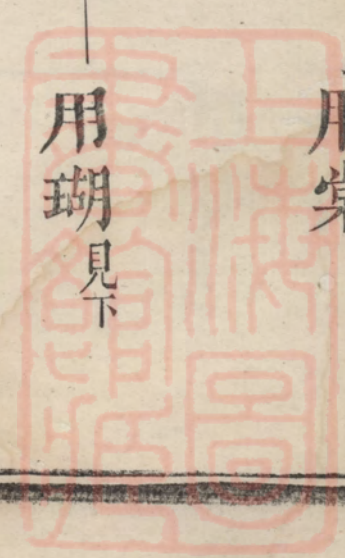 用
用瑚見下
上海圖
書館藏